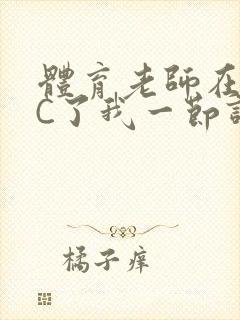 體育老師在
C了我一節
橘子痒